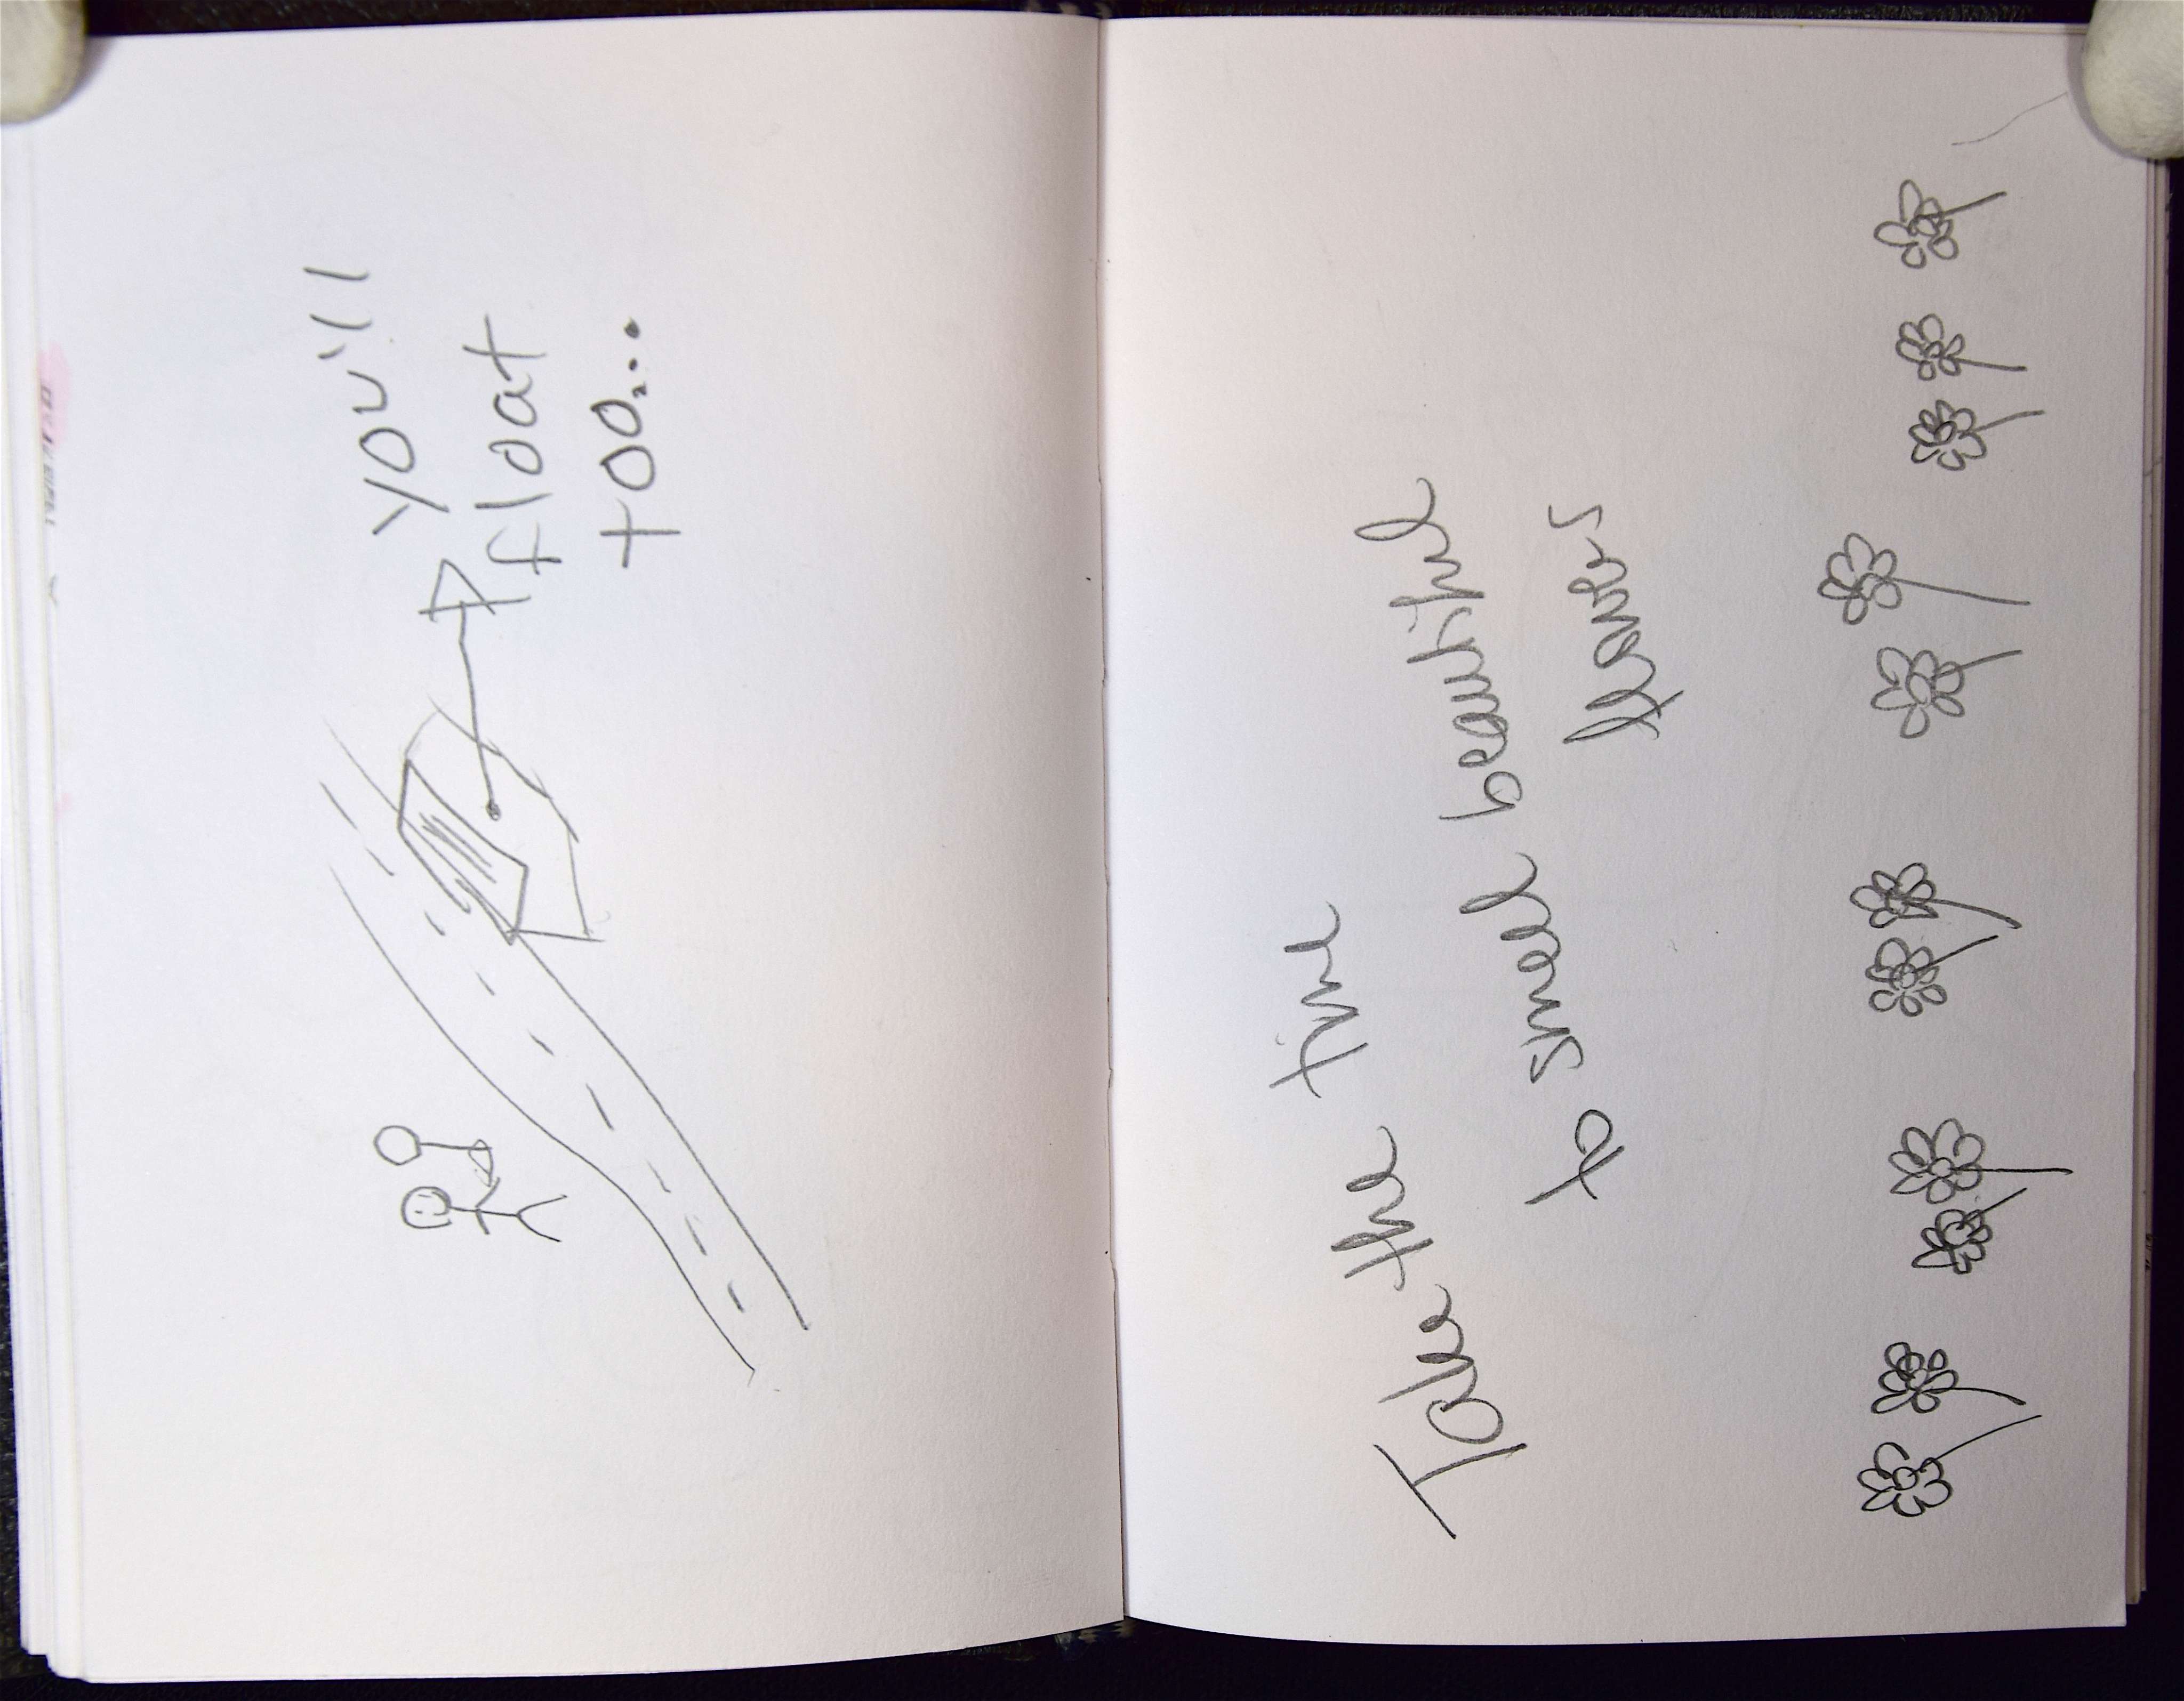 you'll
float
too...
Take the time
to smell beautiful
flowers